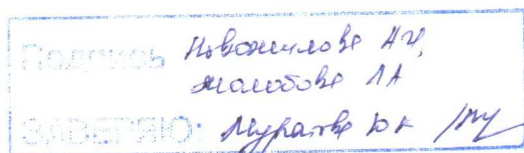 Подпись Новожилова НИ,
Жалобова ЛА
ЗАВЕРЯЮ: Муратова ЮК